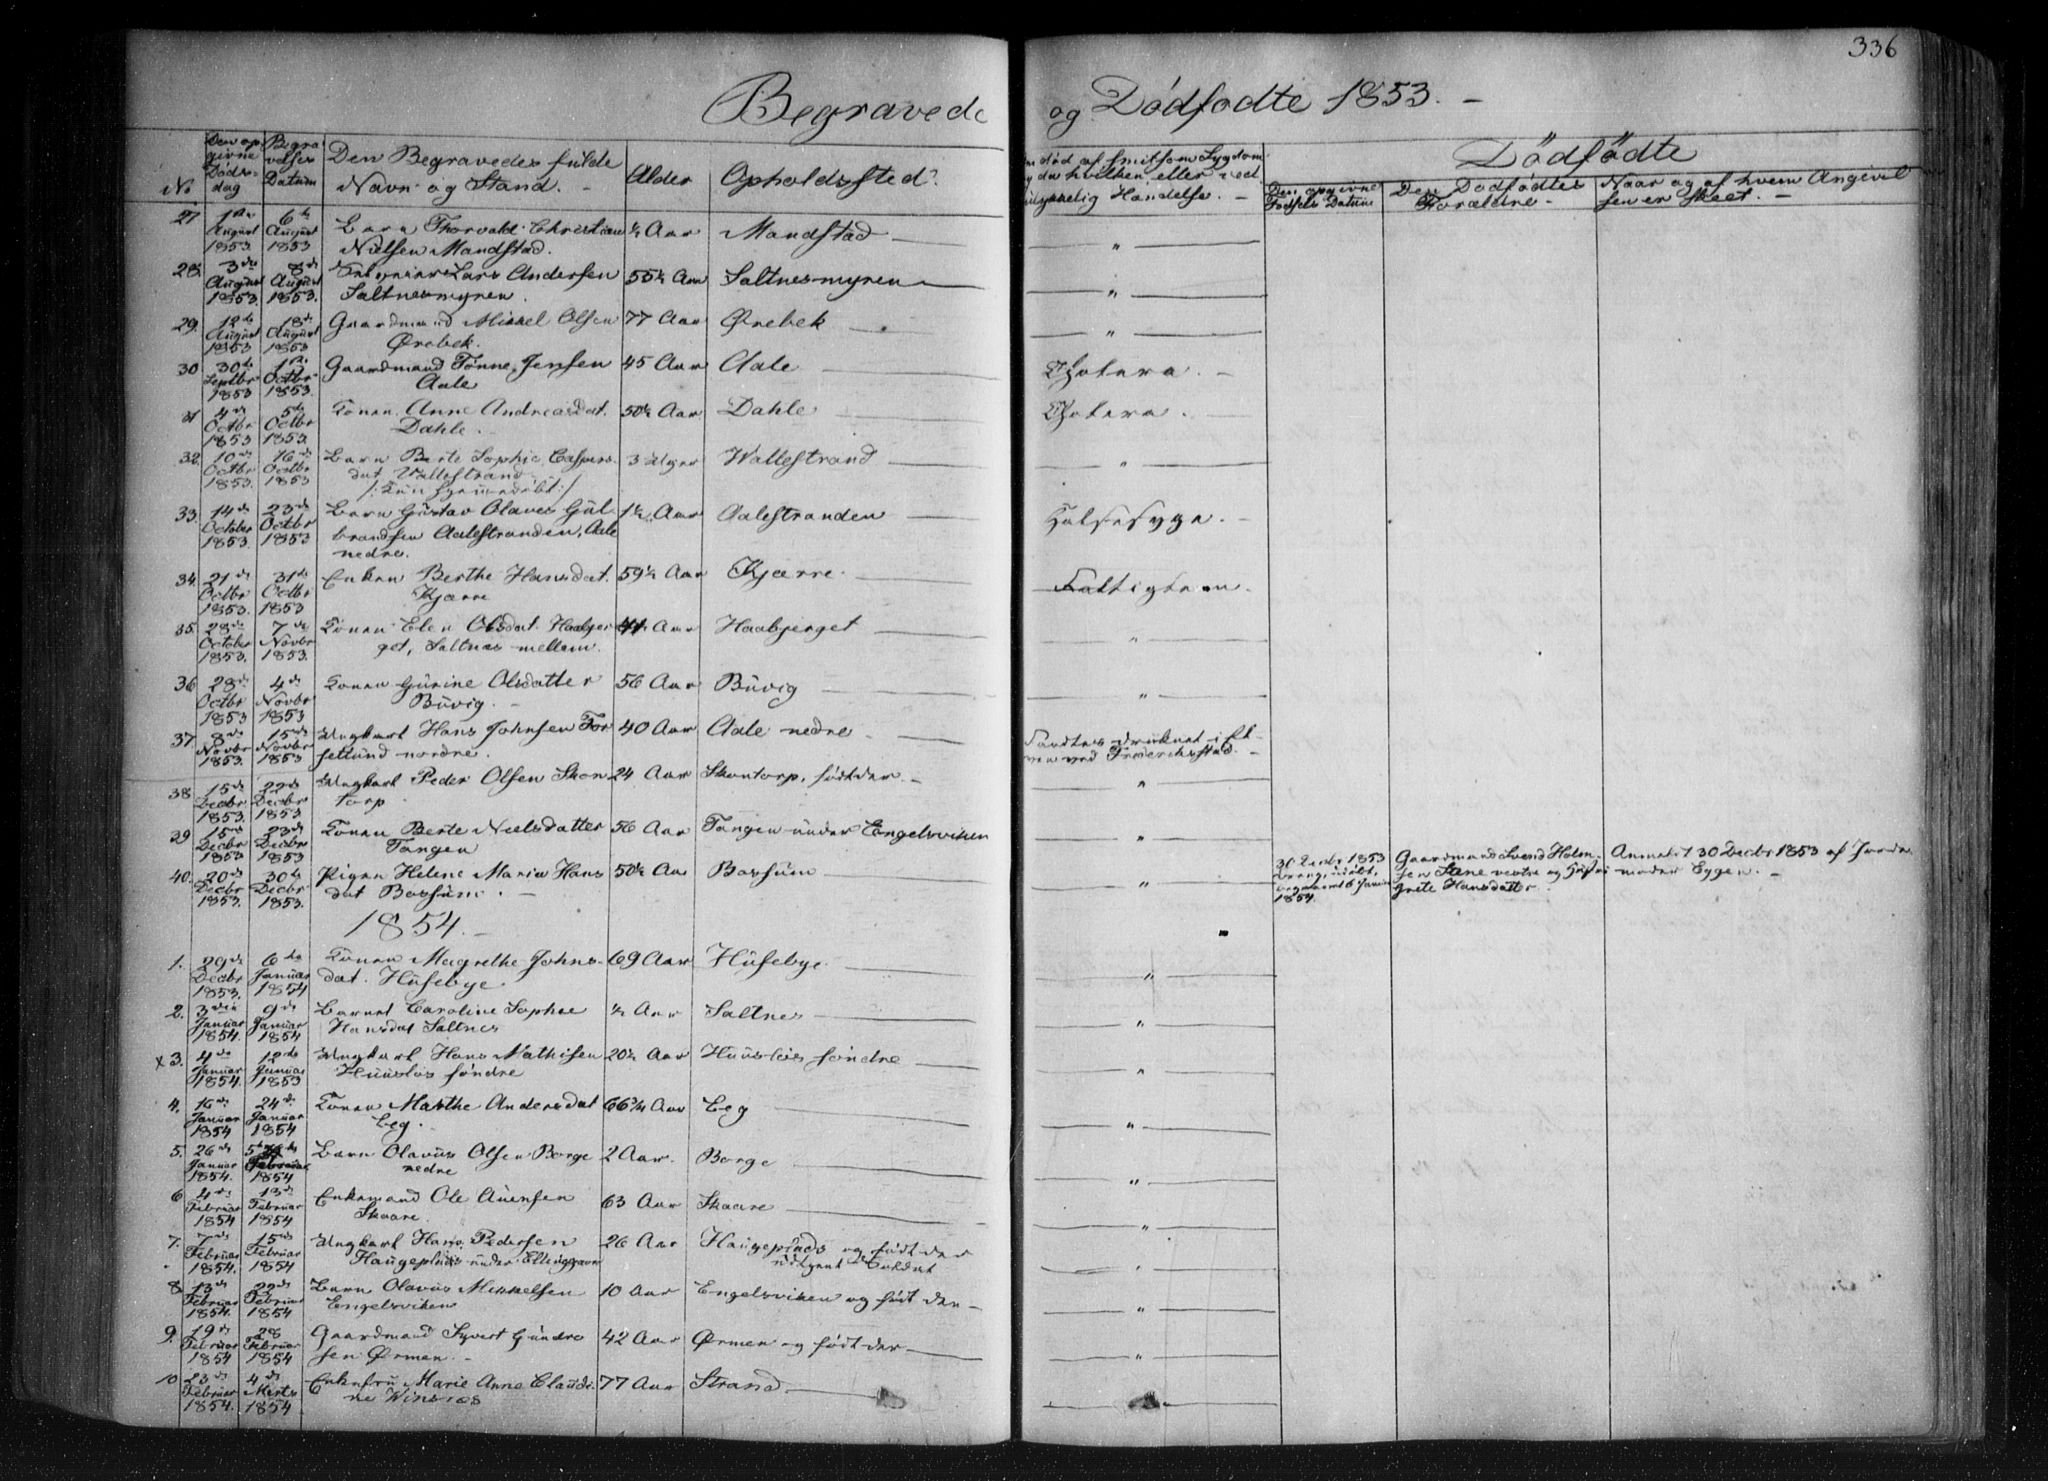 336
Begravede og Dødfødte 1853.
No
Den opgivne Dødsdag
Begravelses Datum
Den Begravedes fulde Navn og Stand.
Alder
Opholdssted
død af smitsom Sygdom
hvilken eller ved
Hændelse.
Dødfødte
Den opgivne Fødsels Datum
Den Dødfødtes Forældre
Naar og af hvem Angivelsen er skeet.
27 1ste August 1853 6te August 1853 Barn Thorvald Christian ½ Aar Mandstad "
Nielsen Mandstad.
28. 3die August 1853. 8de August 1853. Lars Andersen 55½ Aar Saltnesmyren "
Saltnesmyren.
29. 12te August 1853 18de August 1853 Gaardmand Mikkel Olsen 77 Aar Ørebek "
Ørebek.
30 30te Septbr 1853 1ste Octbr 1853. Gaardmand Tønne Jensen 45 Aar Aale Cholera.
Aale
31 4de Octbr 1853 5te Octbr 1853. Konen Anne Andreasdat. 50½ Aar Dahle Cholera.
Dahle.
32. 10de Octbr 1853. 16de Octbr 1853 Barn Berte Sophie Caspers- 3 Uger Wallestrand "
dat Vallestrand
/: Kun hjemmedøbt :/
33. 14de October 1853. 23de Octbr 1853 Barn Gustav Olaves Gul- 1½ Aar Aalestranden Halsesyge.
brandsen Aalestranden, Aale
nedre.
34. 21de Octbr 1853. 31te Octbr 1853 Enken Berthe Hansdat. 59½ Aar Kjærre Fattiglem.
Kjærre
35. 28de October 1853. 7de Novbr 1853. Konen Elen Olsdat. Haabjer Aar Haabjerget "
get, Saltnes mellem.
36 28de Octbr 1853 4de Novbr 1853 Konen Gurine Olsdatter 56 Aar Buvig "
Buvig.
37. 8de Novbr 1853. 15de Novbr 1853 Ungkarl Hans Johnsen For 40 Aar Aale nedre Fandtes druknet i El-
setlund nordre. ven ved Frederiksstad.
38. 15de Decbr 1853. 22de Decbr 1853 Ungkarl Peder Olsen Skon 24 Aar Skontorp, født der "
torp
39 15de Decbr 1853 23de Decbr 1853 Konen Berte Nielsdatter 56 Aar Tangen under Engelsviken "
Tangen
40. 20de Decbr 1853. 30te Decbr 1853. Pigen Helene Maria Hans 50½ Aar Bossum "
dat Bossum.
30 Decbr 1853 Gaardmand Svend Holm- Anmeldt 30 Decbr 1853 af Jorde-
Dreng, udøbt, sen vestre og moder Eggen.
begravet 6 Januar grete Hansdatter
1854.
1854.
1. 29de Decbr 1853. 6te Januar 1854 Konen Magrethe Johns- 69 Aar Husebye "
dat. Husebye
2. 3die Januar 1854. 9de Januar 1854 Barnet Caroline Sophie ½ Aar Saltnes "
Hansdat Saltnes
x 3. 4de Januar 1854. 12te Januar 1853 Ungkarl Hans Mathisen 20½ Aar Huusløs søndre "
Huusløs søndre
4. 16de Januar 1854 24de Januar 1854 Konen Marthe Andersdat 66¾ Aar Eeg "
Eeg.
5. 26de Januar 1854. 5te Februar 1854 Barn Olavus Olsen Borge 2 Aar. Borge "
nedre
6 4de Februar 1854 13de Februar 1854 Enkemand Ole Auensen 63 Aar Skaare "
Skaare
7. 7de Februar 1854. 15de Februar 1854 Ungkarl Hans Pedersen 26 Aar Haugeplads og født der "
Haugeplads under udtjent Soldat
8 13de Februar 1854. 22de Februar 1854 Barn Olavus Mikkelsen 10 Aar Engelsviken og født der "
Engelsviken
9. 19de Februar 1854 28 Februar 1854 Gaardmand Syvert Gundre 42 Aar Ørmen og født der "
sen Ørmen.
10 23de Februar 1854. 4de Marts 1854 Enkefru Marie Anne Claudi- 77 Aar Strand
ne Winsnes